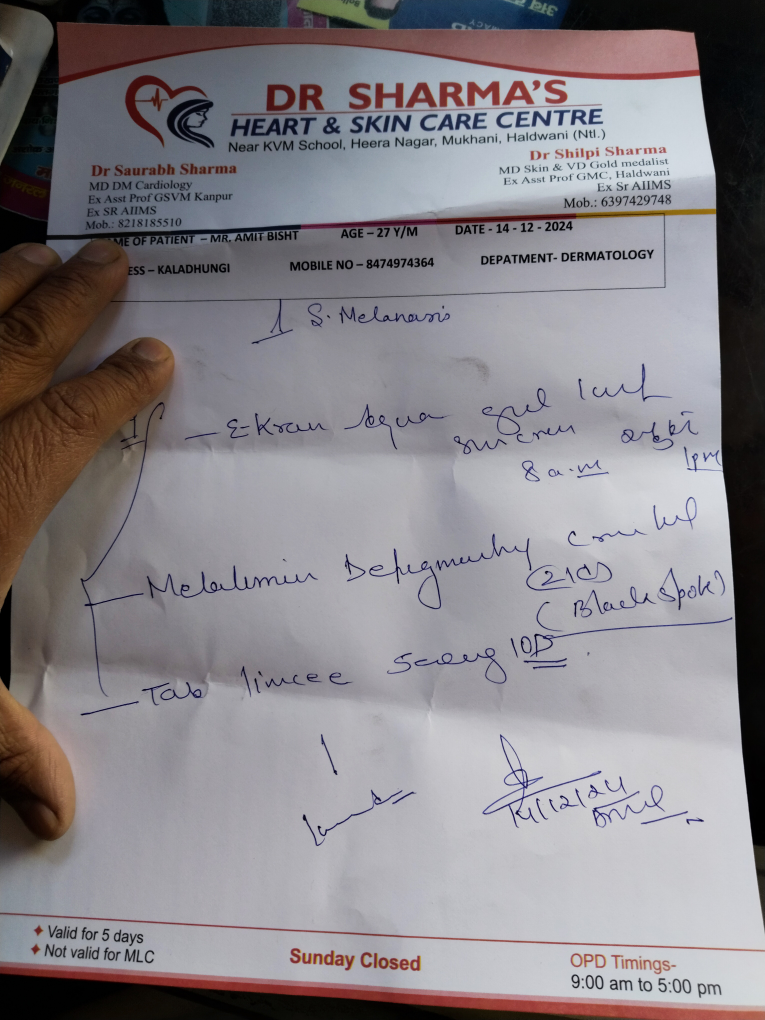 DR SHARMA'S
HEART & SKIN CARE CENTRE
Near KVM School, Heera Nagar, Mukhani, Haldwani (Ntl.)
Dr Saurabh Sharma
MD DM Cardiology
Ex Asst Prof GSVM Kanpur
Ex SR AIIMS
Mob.: 8218185510
Dr Shilpi Sharma
MD Skin & VD Gold medalist
Ex Asst Prof GMC, Haldwani
Ex Sr AIIMS
Mob.: 6397429748
ME OF PATIENT – MR. AMIT BISHT AGE – 27 Y/M DATE - 14 - 12 - 2024
ESS – KALADHUNGI MOBILE NO – 8474974364 DEPATMENT- DERMATOLOGY
S. Melanasis
Ekran Aqua gel
8 a.m 1pm
(Black Spot)
Tab limcee 500mg
14/12/24
Valid for 5 days
Not valid for MLC
Sunday Closed
OPD Timings-
9:00 am to 5:00 pm